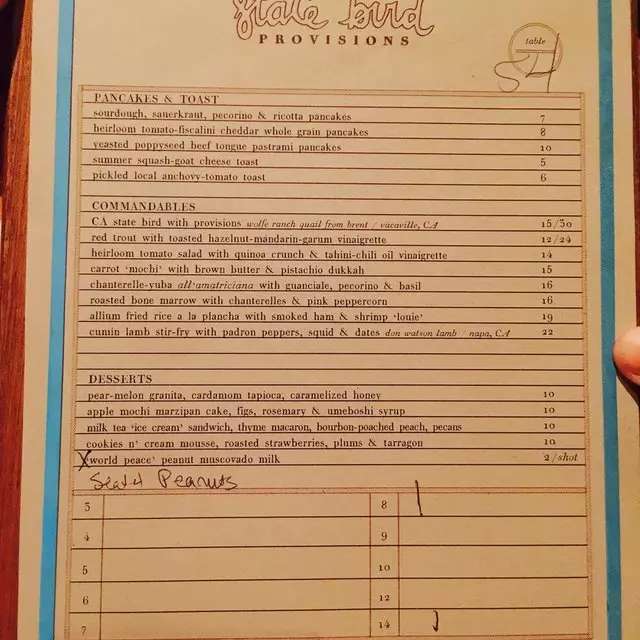 state bird
PROVISIONS
table
54
PANCAKES & TOAST
sourdough, sauerkraut, pecorino & ricotta pancakes 7
heirloom tomato-fiscalini cheddar whole grain pancakes 8
yeasted poppyseed beef tongue pastrami pancakes 10
summer squash-goat cheese toast 5
pickled local anchovy-tomato toast 6
COMMANDABLES
CA state bird with provisions wolfe ranch quail from brent / vacaville, CA 15/30
red trout with toasted hazelnut-mandarin-garum vinaigrette 12/24
heirloom tomato salad with quinoa crunch & tahini-chili oil vinaigrette 14
carrot 'mochi' with brown butter & pistachio dukkah 15
chanterelle-yuba all'amatriciana with guanciale, pecorino & basil 16
roasted bone marrow with chanterelles & pink peppercorn 16
allium fried rice a la plancha with smoked ham & shrimp 'louie' 19
cumin lamb stir-fry with padron peppers, squid & dates don watson lamb / napa, CA 22
DESSERTS
pear-melon granita, cardamom tapioca, caramelized honey 10
apple mochi marzipan cake, figs, rosemary & umeboshi syrup 10
milk tea 'ice cream' sandwich, thyme macaron, bourbon-poached peach, pecans 10
cookies n' cream mousse, roasted strawberries, plums & tarragon 10
X world peace' peanut muscovado milk 2/shot
Seat 4 Peanuts
3 8
4 9
5 10
6 12
7 14